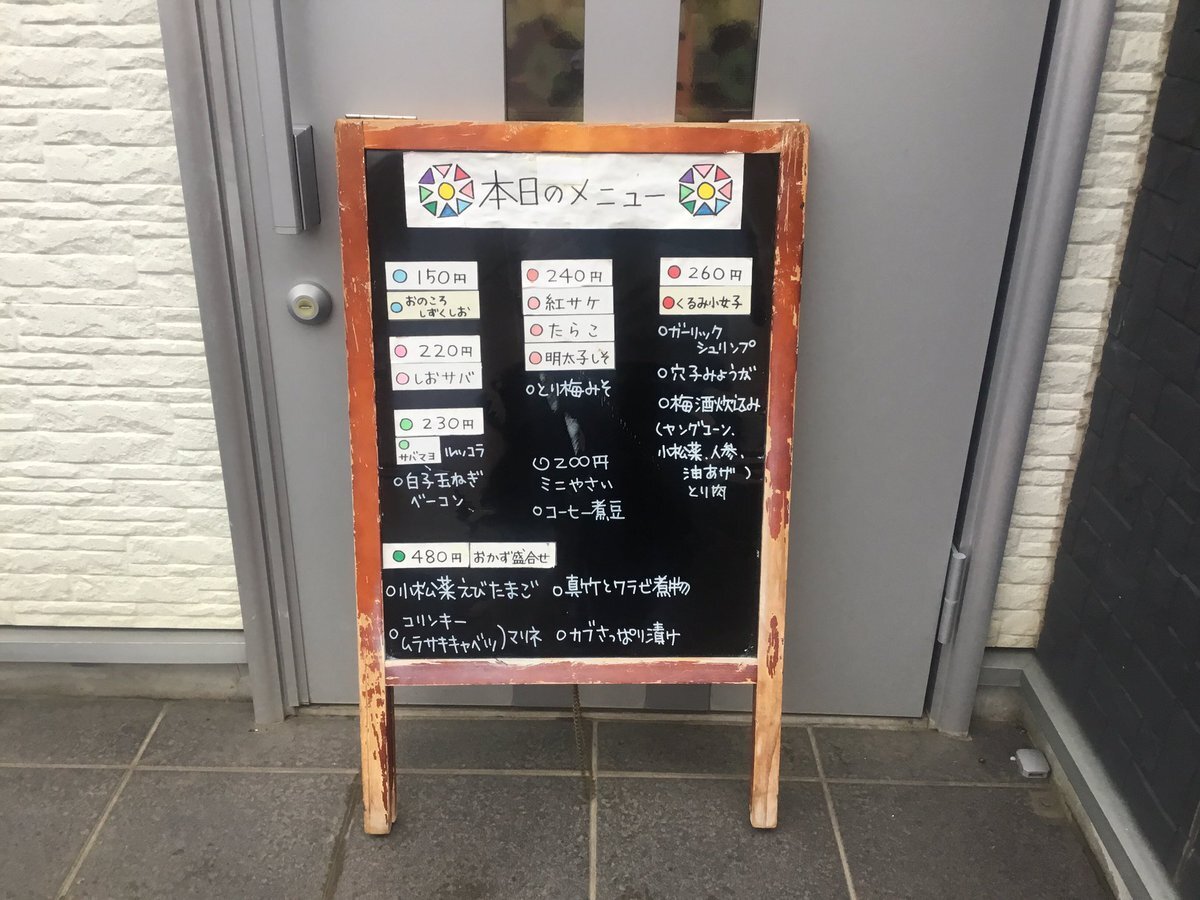 本日のメニュー
150円
おのころ
しずくしお
220円
しおサバ
230円
サバマヨ ルッコラ
○白子玉ねぎ
ベーコン
240円
紅サケ
たらこ
明太子しそ
○とり梅みそ
200円
ミニやさい
○コーヒー煮豆
260円
くるみ小女子
○ガーリック
シュリンプ
○穴子みょうが
○梅酒炊込み
(ヤングコーン、
小松菜、人参、
油あげ)
とり肉
480円 おかず盛合せ
○小松菜えびたまご ○真竹とワラビ煮物
コリンキー
○ムラサキキャベツ)マリネ ○カブさっぱり漬け